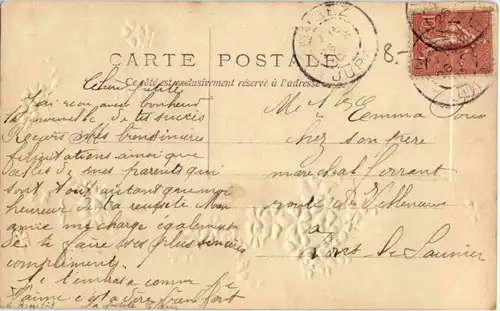 CARTE POSTALE
Ce côté est exclusivement réservé à l'adresse
JURA
10
8.-
Chère petite
J'ai reçu avec bonheur
la nouvelle de tes succès
Reçois mes bien sincères
félicitations ainsi que
celles de mes parents qui
sont tout autant que moi
heureux de ta réussite Mon
amie me charge également
de te faire ses plus sincères
compliments.
Je t'embrasse comme je
t'aime c'est à dire bien fort
à bientôt La petite
Mlle Emma
chez son père
marechal ferrant
route de Villeneuve
à
Lons le Saunier